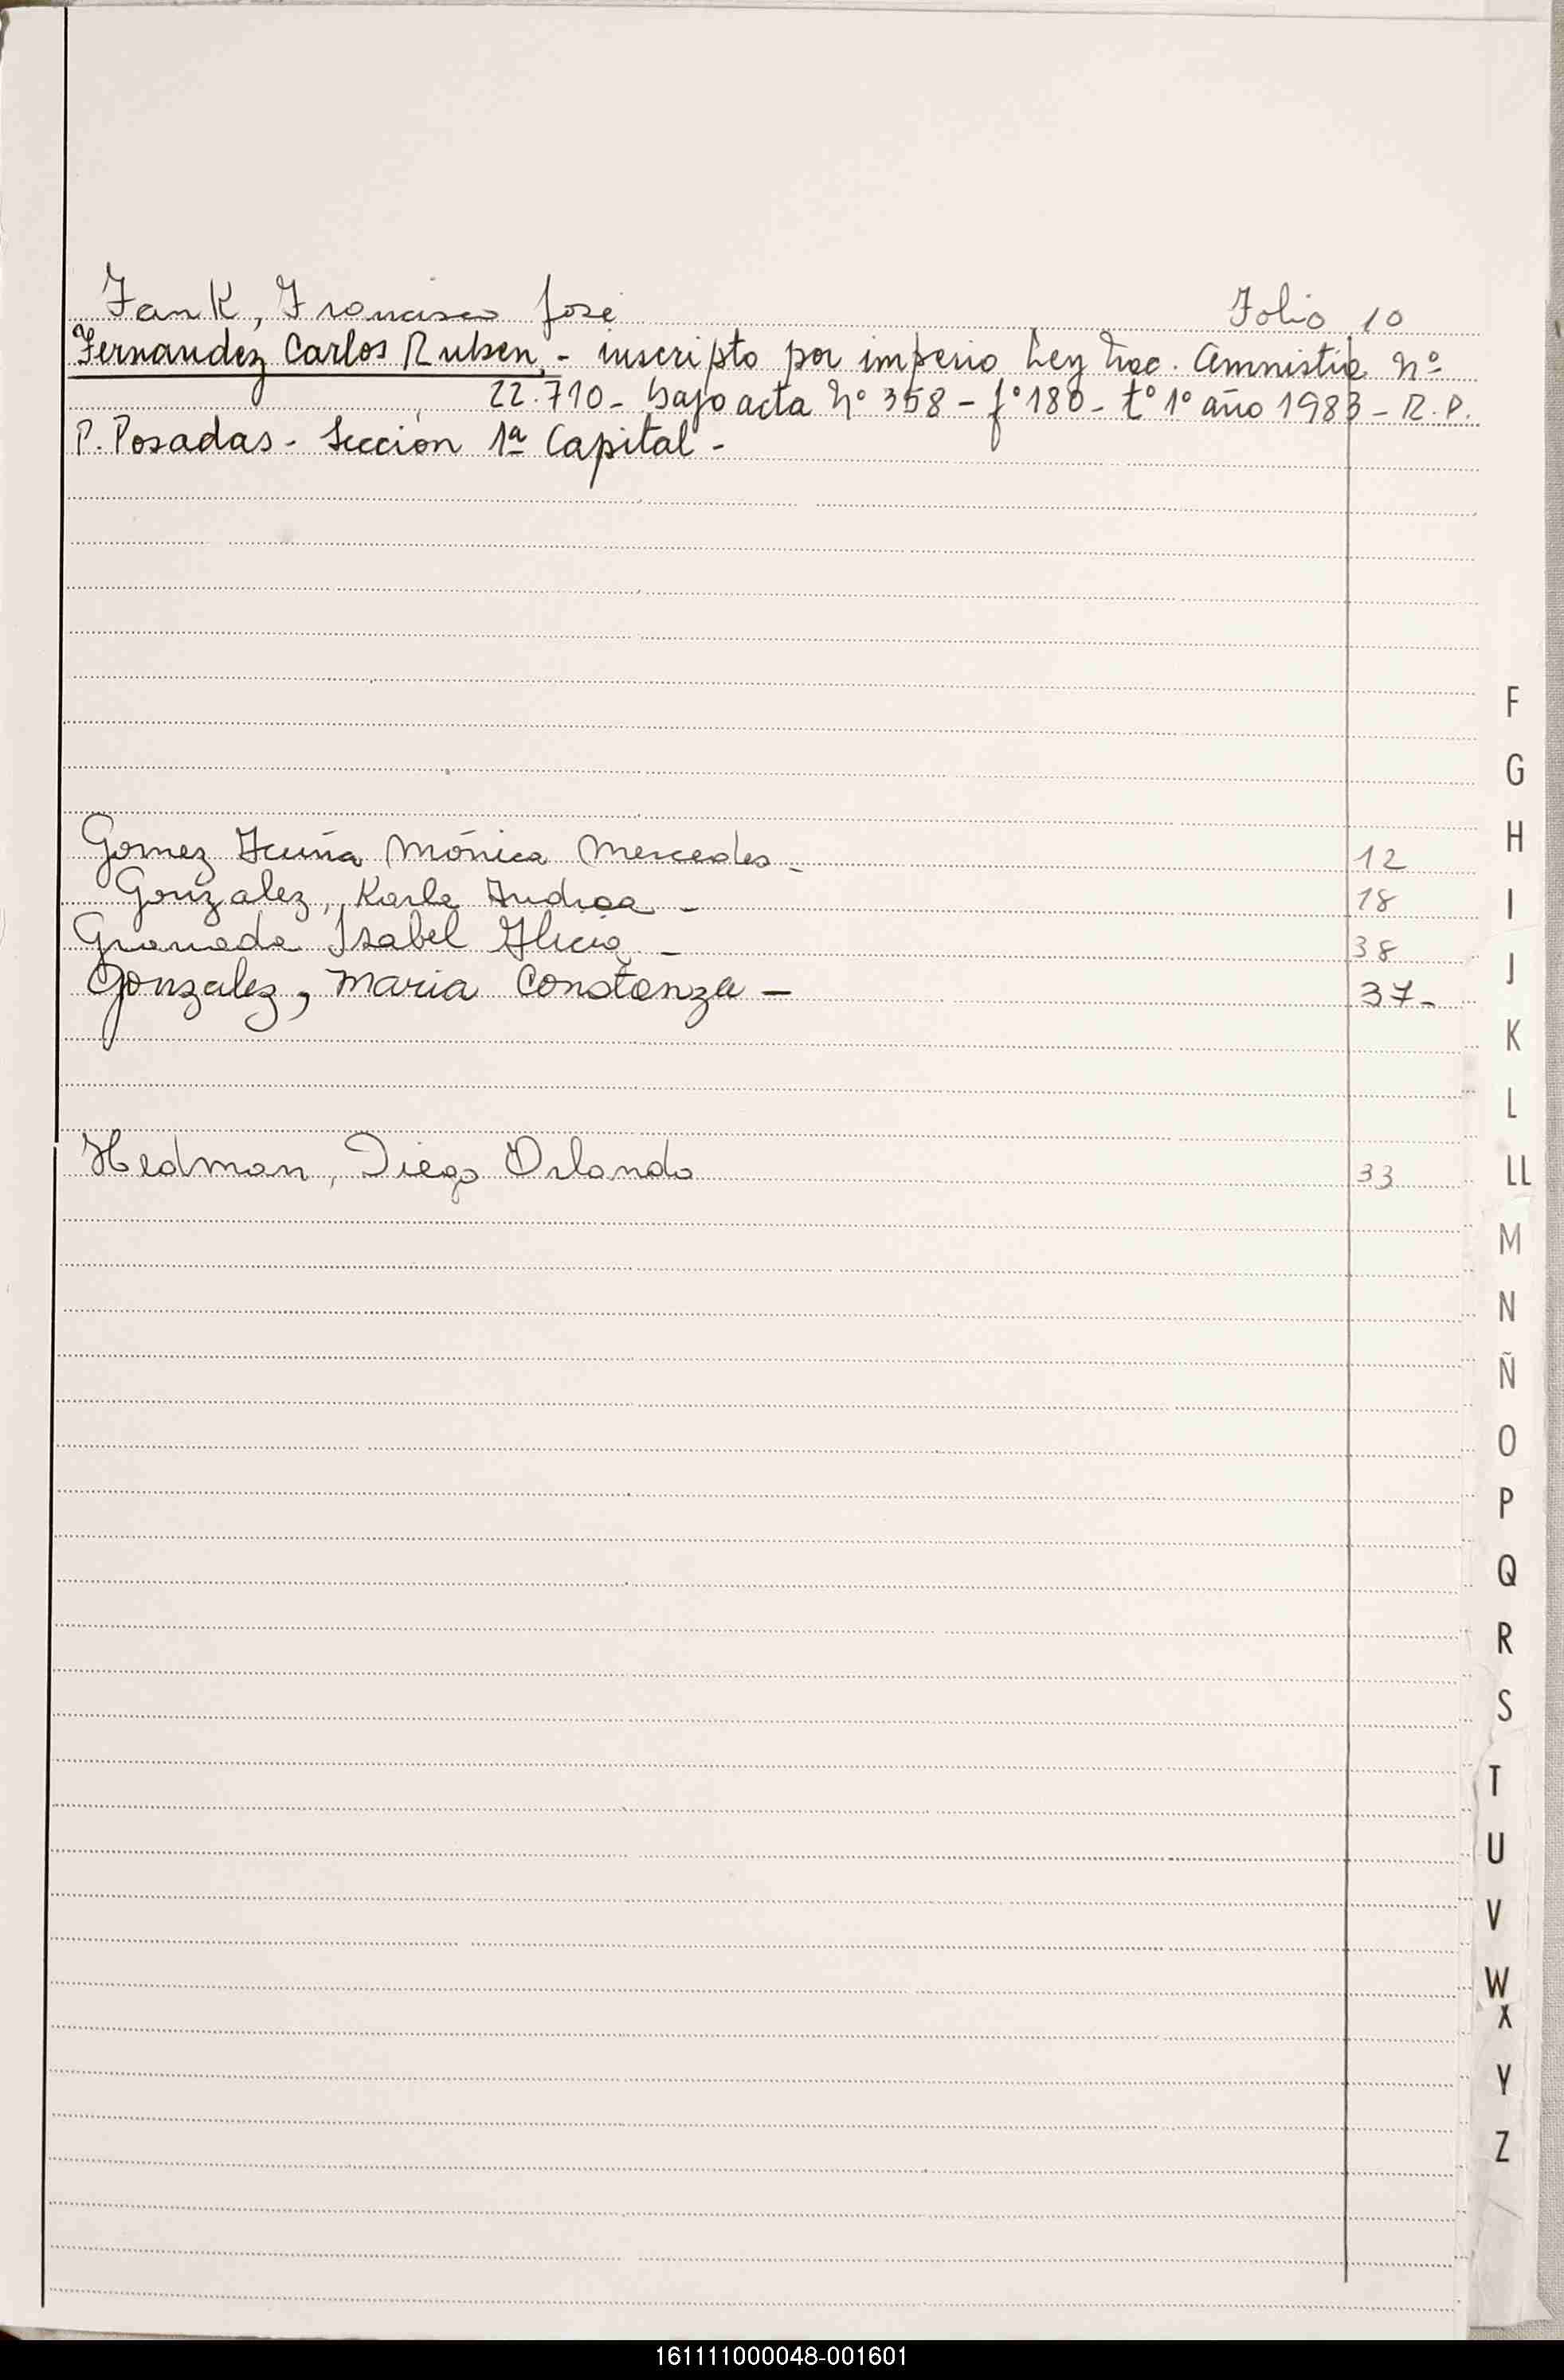 Fank, Francisco José Folio 10
Fernandez Carlos Ruben,- inscripto por imperio Ley Nac. Amnistia Nº
22.710- bajo acta Nº 358 - fº 180 - tº 1º año 1983 - R.P.
P. Posadas - Sección 1ª Capital -
Gomez Acuña Mónica Mercedes - 12
Gonzalez, Karla Andrea - 18
Granada Isabel Alicia - 38
Gonzalez, Maria Constanza - 37-
Hedman, Diego Orlando 33
F
G
H
I
J
K
L
LL
M
N
Ñ
O
P
Q
R
S
T
U
V
W
X
Y
Z
161111000048-001601